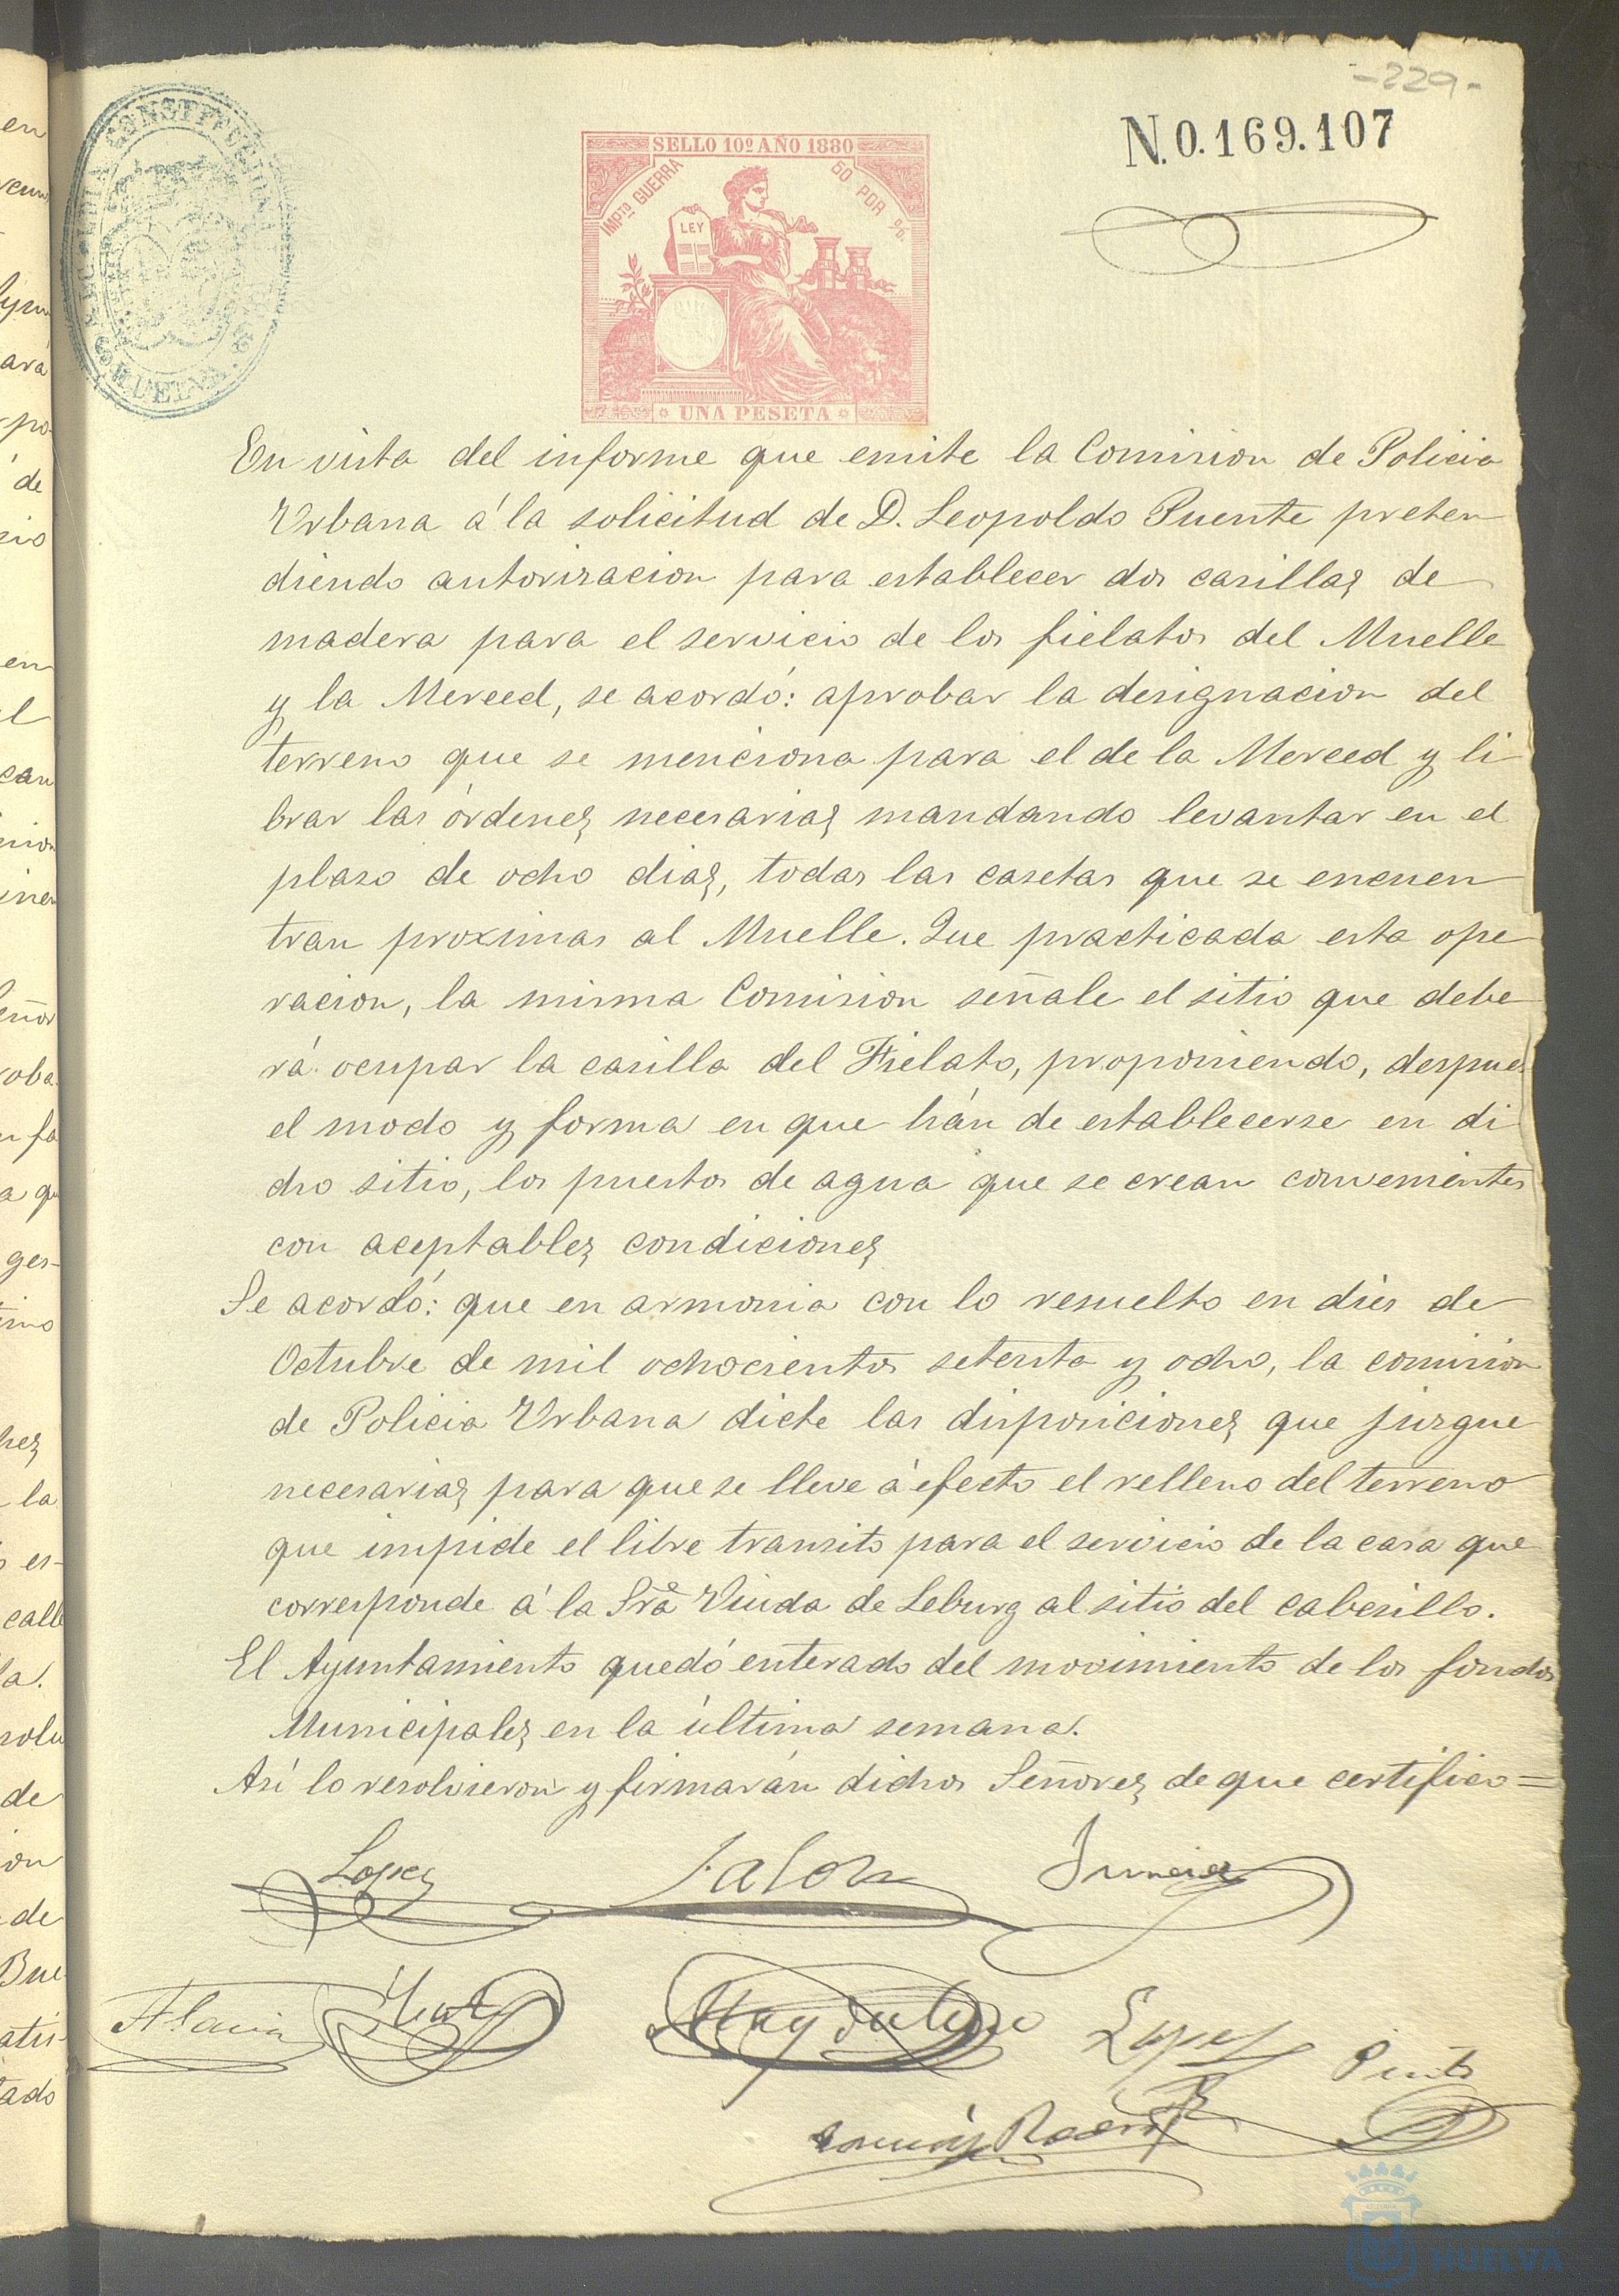 -229-
N.0.169.107
SELLO 10º AÑO 1880
IMPTO GUERRA 50 POR %
LEY
UNA PESETA
CONSTITUCIONAL
HUELVA
En vista del informe que emite la Comision de Policia
Urbana á la solicitud de D. Leopoldo Puente preten
diendo autorizacion para establecer dos casillas de
madera para el servicio de los fielatos del Muelle
y la Merced, se acordó: aprobar la designacion del
terreno que se menciona para el de la Merced y li
brar las órdenes necesarias mandando levantar en el
plaso de ocho dias, todas las casetas que se encuen
tran proximas al Muelle. Que practicada esta ope
racion, la misma Comision señale el sitio que debe
rá ocupar la casilla del Fielato, proponiendo, despues
el modo y forma en que hán de establecerse en di
cho sitio, los puestos de agua que se crean convenientes
con aceptables condiciones
Se acordó: que en armonia con lo resuelto en dies de
Octubre de mil ochocientos setenta y ocho, la comision
de Policia Urbana dicte las disposiciones que jusgue
necesarias para que se lleve á efecto el relleno del terreno
que impide el libre transito para el servicio de la casa que
corresponde á la Srã Viuda de Leburg al sitio del cabesillo.
El Ayuntamiento quedó enterado del movimiento de los fondos
Municipales en la última semana.
Así lo resolvieron y firmarán dichos Señores de que certifico=
Lopez Jalon
Lopez Pinto
HUELVA